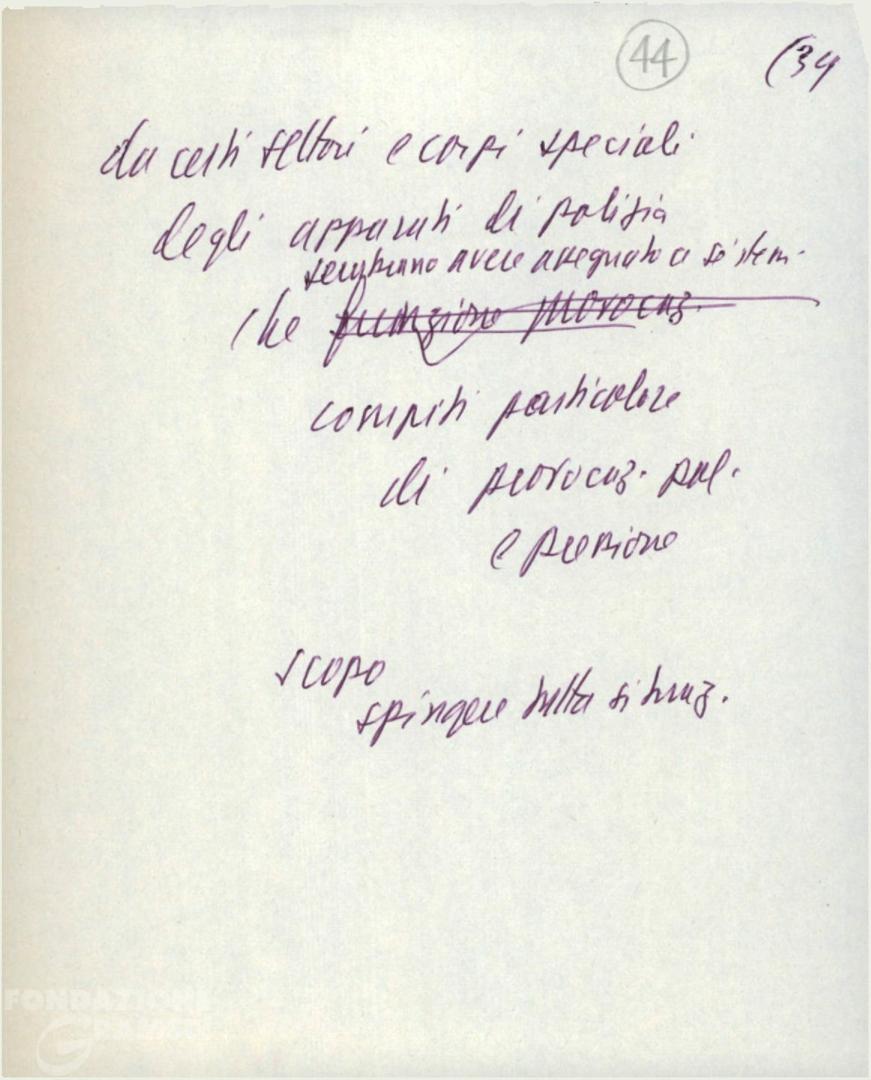 44
(34
da certi settori e corpi speciali
degli apparati di polizia
sembrano avere assegnato a sistem.
che funzione provocaz.
compiti particolare
di provocaz. pol.
e pressione
scopo
spingere tutta situaz.
FONDAZIONE
GRAMSCI